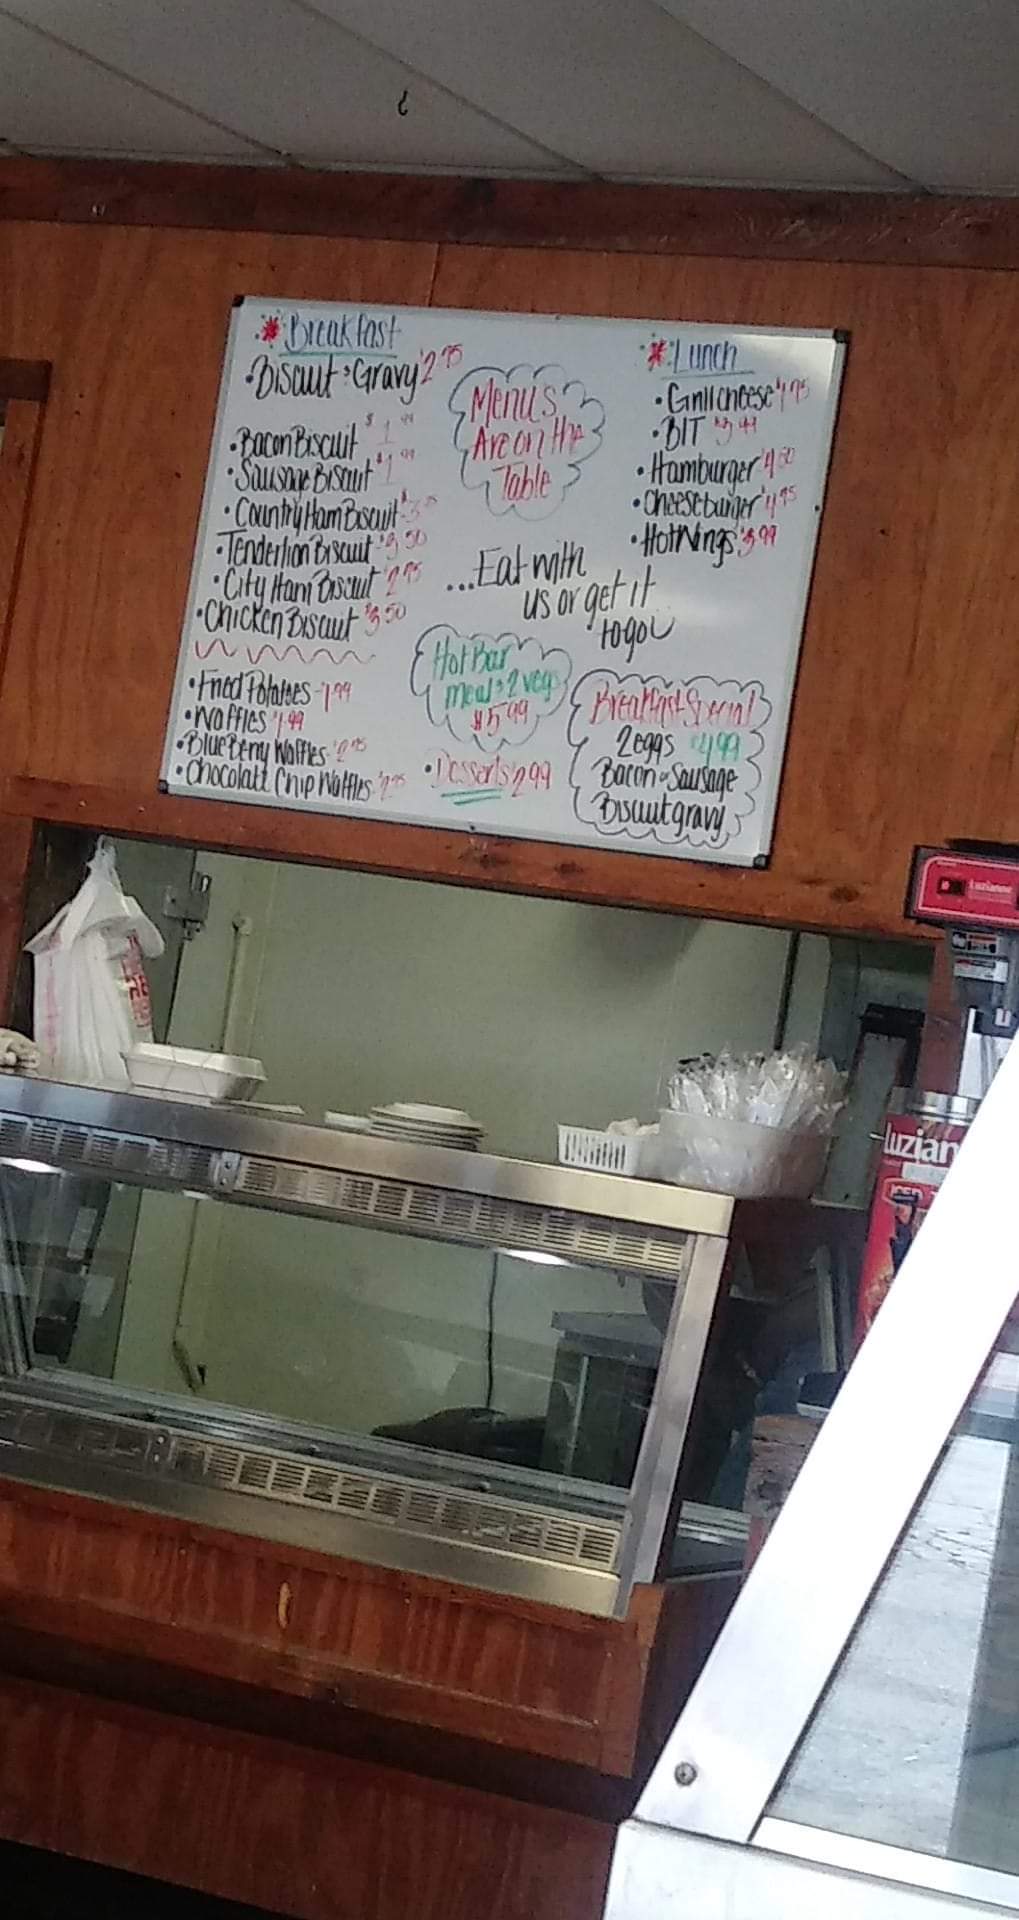 Breakfast
•Biscuit & Gravy $2.95
•Bacon Biscuit $1.99
•Sausage Biscuit $1.99
•Country Ham Biscuit
•Tenderlion Biscuit $3.50
•City Ham Biscuit $2.95
•Chicken Biscuit $3.50
•Fried Potatoes 1.99
•Waffles 1.99
•BlueBerry Waffles 2.95
•Chocolate Chip Waffles 2.95
Menu's
Are on the
Table
...Eat with
us or get it
to go
Hot Bar
meal & 2 vegs
$5.99
•Desserts 2.99
Lunch
•Grill cheese $1.95
•BLT $3.99
•Hamburger 4.50
•Cheeseburger $4.95
•Hot Wings $3.99
Breakfast Special
2 eggs $4.99
Bacon or Sausage
Biscuit gravy
Luzianne
Luzian
ICED